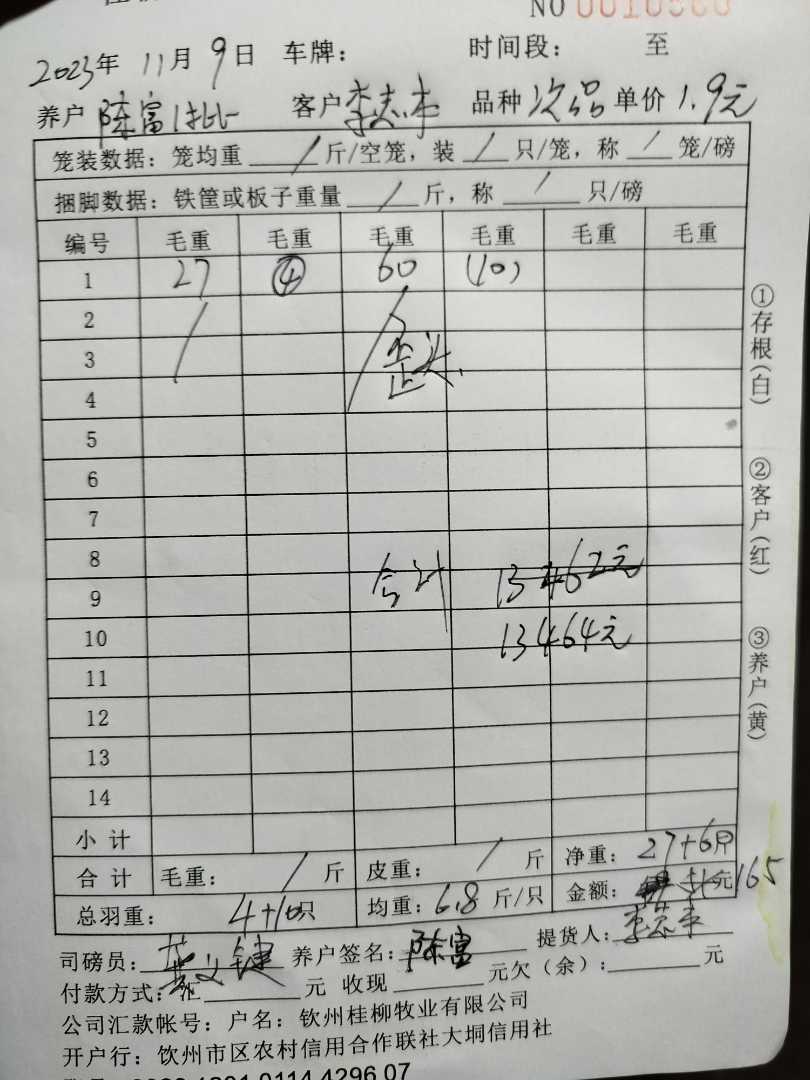 NO 0010560
2023年 11月 9日 车牌: 时间段: 至
养户 陈富 客户 李志 品种 次品 单价 1.9元
笼装数据: 笼均重 / 斤/空笼, 装 / 只/笼, 称 / 笼/磅
捆脚数据: 铁筐或板子重量 / 斤, 称 / 只/磅
编号 毛重 毛重 毛重 毛重 毛重 毛重
1 27 ④ 60 (10)
2
3 歪头
4
5
6
7
8
9 合计 13462元
10 13464元
11
12
13
14
小计
合计 毛重: / 斤 皮重: / 斤 净重: 27+6只
总羽重: 4+10只 均重: 6.8 斤/只 金额: 元 165
司磅员: 黄文健 养户签名: 陈富 提货人: 李志
付款方式: 汇 元 收现 元欠(余): 元
公司汇款帐号: 户名: 钦州桂柳牧业有限公司
开户行: 钦州市区农村信用合作联社大垌信用社
①存根(白)
②客户(红)
③养户(黄)